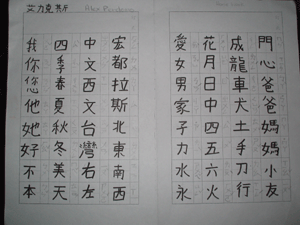 艾力克斯
門心爸爸媽媽小友
成龍車犬土手刀行
花月日中四五六火
愛女男家子力水永
宏都拉斯北東南西
中文西文台灣右左
四季春夏秋冬美天
我你您他她好不本